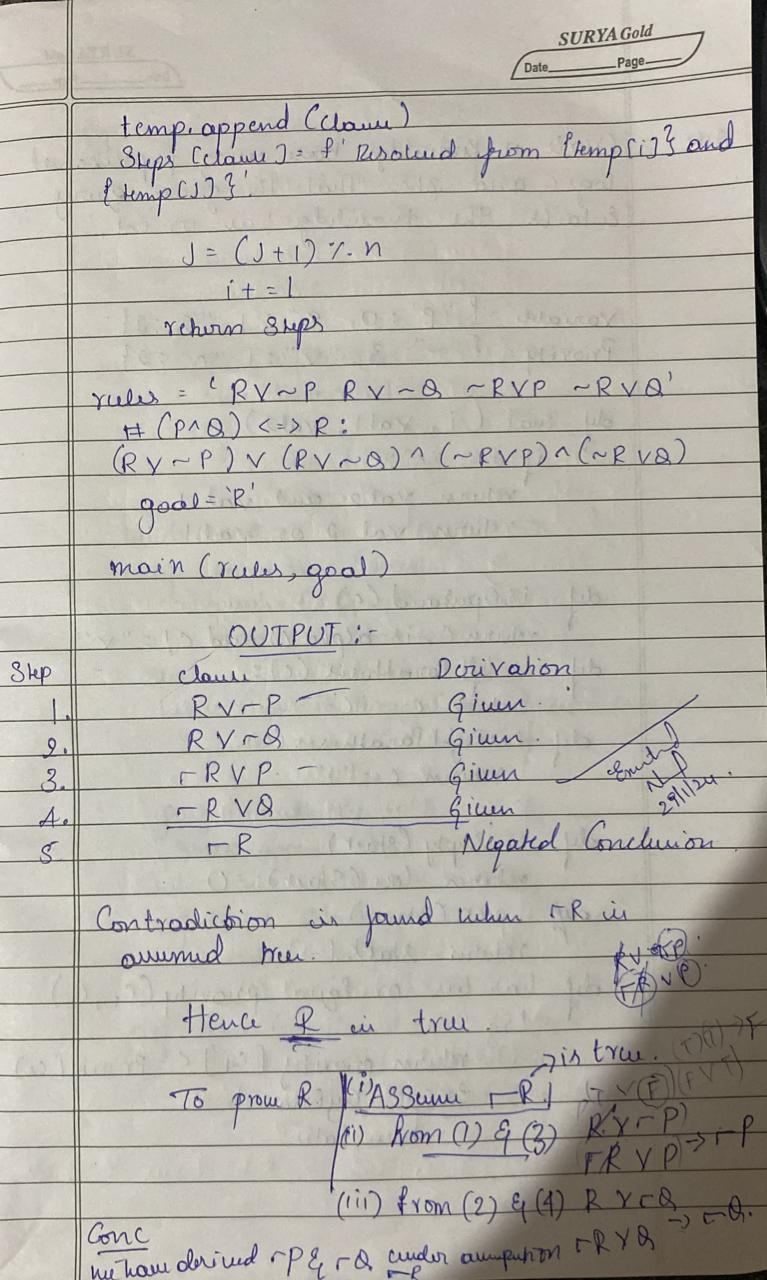 SURYA Gold
Date Page
temp.append (clause)
Steps [clause] = f' Resolved from {temp[i]} and
{temp[J]}'.
J = (J+1) % n
i += 1
return steps
rules = 'RV~P RV~Q ~RVP ~RVQ'
# (P^Q) <=> R :
(RV~P) V (RV~Q) ^ (~RVP) ^ (~RVQ)
goal = 'R'
main (rules, goal)
OUTPUT :-
Step Clause Derivation
1. RV¬P Given.
2. RV¬Q Given.
3. ¬RVP Given
4. ¬RVQ Given
5 ¬R Negated Conclusion.
29/1/24.
Contradiction is found when ¬R is
assumed true.
RV¬P.
¬RVP.
Hence R is true.
→ is true.
To prove R (i) Assume ¬R
(ii) from (1) & (3) RV¬P
¬RVP → ¬P
(iii) from (2) & (4) RV¬Q
¬RVQ → ¬Q.
Conc
We have derived ¬P & ¬Q under assumption
¬R